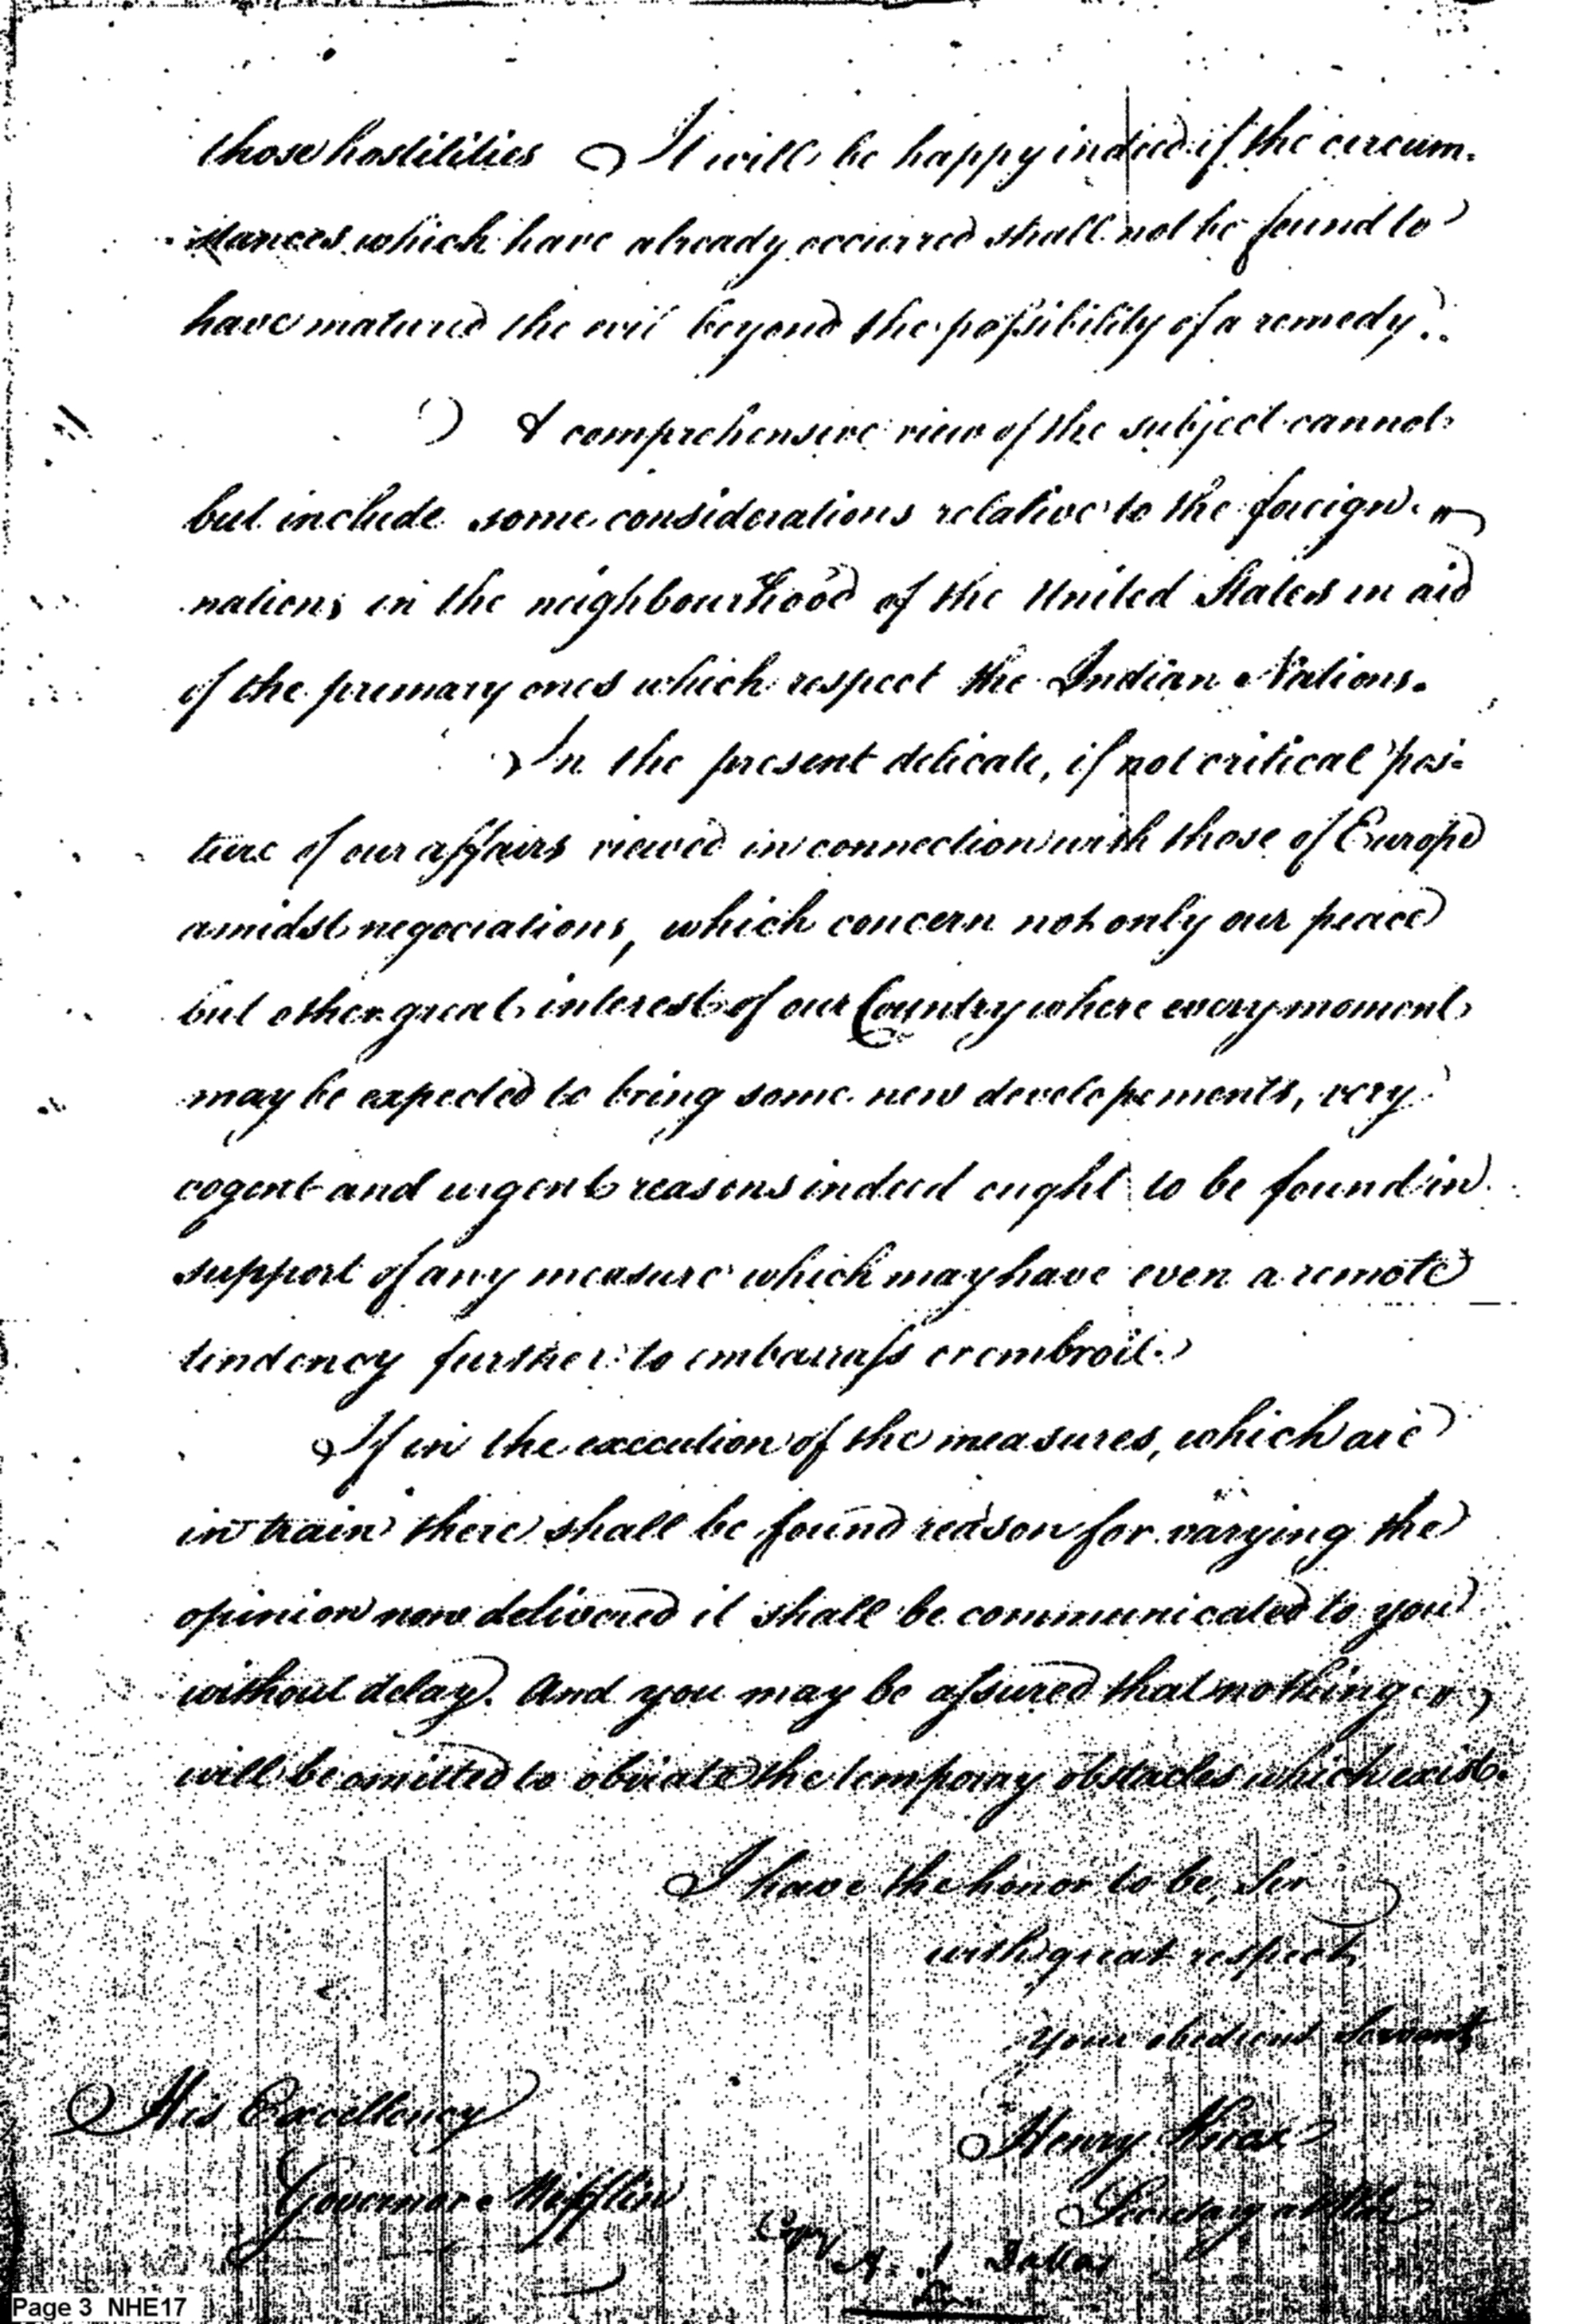 those hostilities It will be happy indeed if the circum-
stances which have already occurred shall not be found to
have matured the evil beyond the possibility of a remedy.
A comprehensive view of the subject cannot
but include some considerations relative to the foreign
nations in the neighbourhood of the United States in aid
of the primary ones which respect the Indian Nations.
In the present delicate, if not critical pos-
ture of our affairs viewed in connection with those of Europe
amidst negociations, which concern not only our peace
but other great interests of our Country where every moment
may be expected to bring some new developements, very
cogent and urgent reasons indeed ought to be found in
support of any measure which may have even a remote
tendency further to embarrass or embroil.
If in the execution of the measures, which are
in train there shall be found reason for varying the
opinion now delivered it shall be communicated to you
without delay. And you may be assured that nothing
will be omitted to obviate the tempoary obstacles which exist.
I have the honor to be, Sir
with great respect
Your obedient Servant
His Excellency
Henry Knox
Governor Mifflin
Secretary at War
Copy
A. J. Dallas
Page 3 NHE17